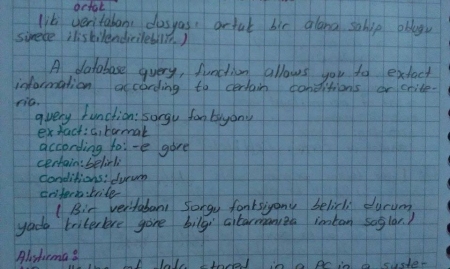 ortak
(ik veritabanı dosyası ortak bir alana sahip olduğu
sürece ilişkilendirilebilir.)
A database query, function allows you to extact
information according to certain conditions or crite-
ria.
query function: sorgu fonksiyonu
extact: çıkarmak
according to: -e göre
certain: belirli
conditions: durum
criteria: kriter
( Bir veritabanı Sorgu fonksiyonu belirli durum
yada kriterlere göre bilgi çıkarmanıza imkan sağlar.)
Alıştırma 2
of data stored in a PC in a syste-